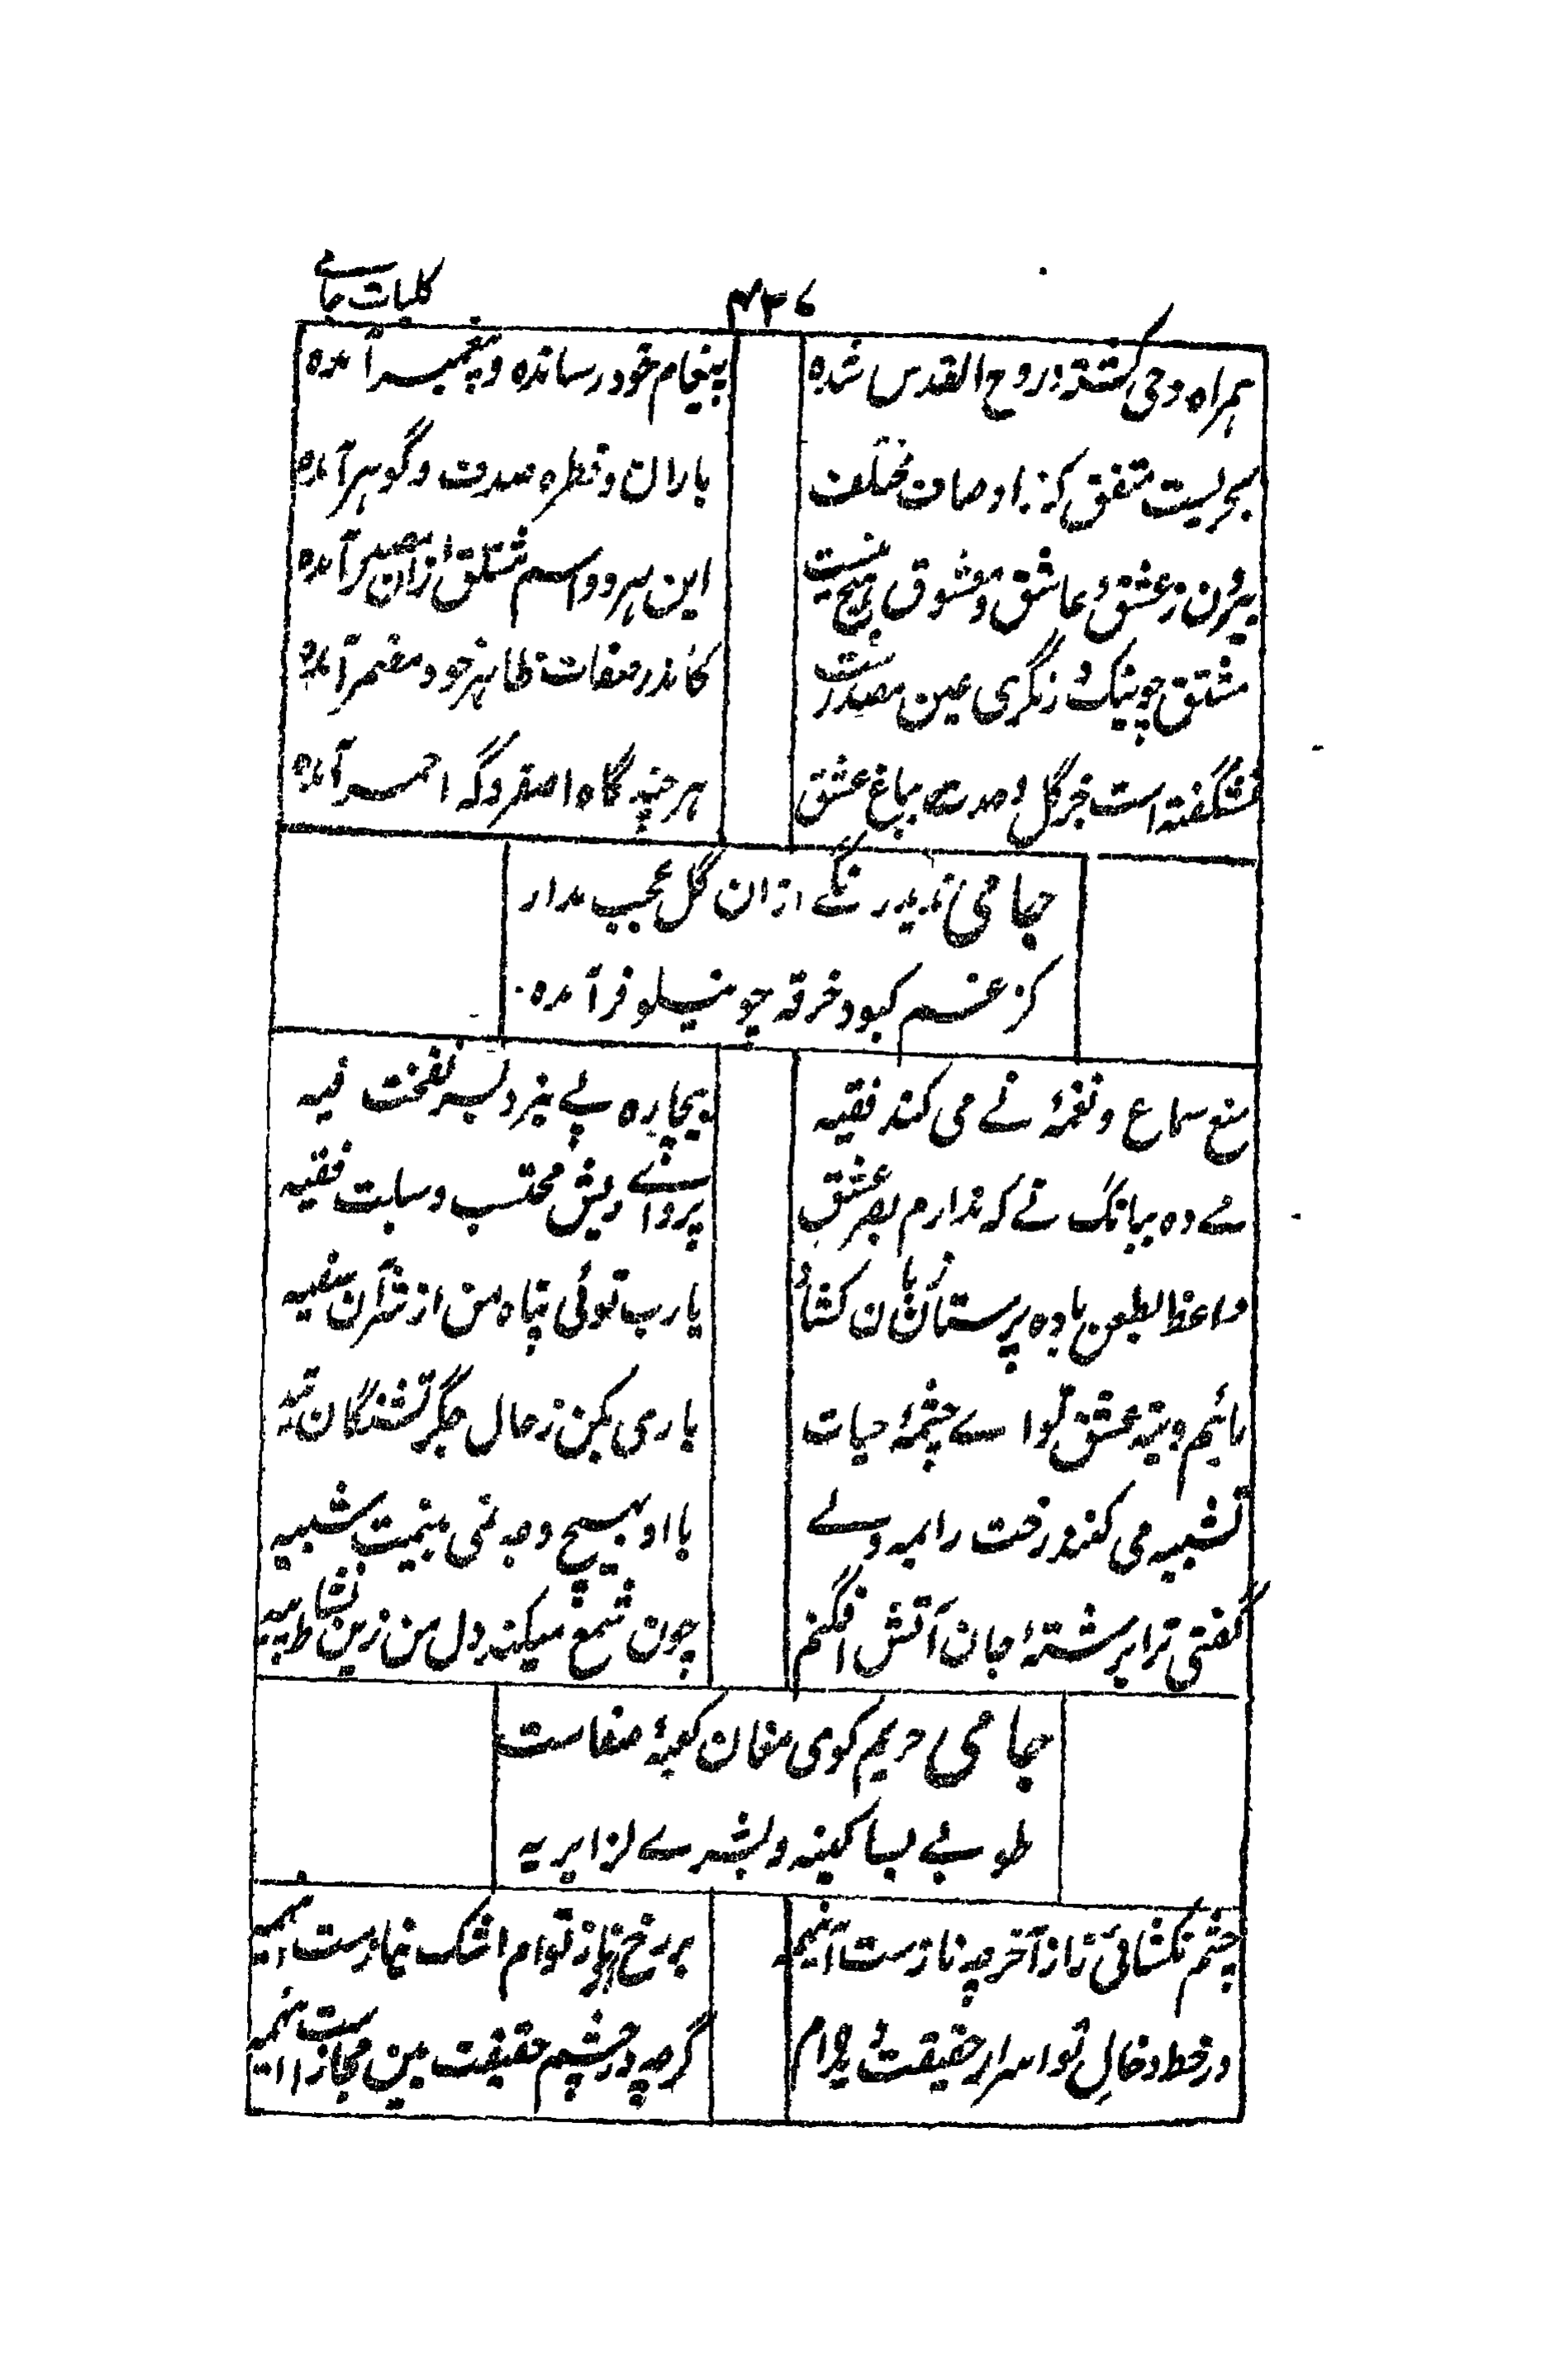 ۴۳۶
کلیات جامے
همراه وحی گشته و روح القدس شده
پیغام خود رسانده و پیغمبر آمده
بحریست متفق که باوصاف مختلف
باران و قطره صدف و گوهر آمده
بیرون ز عشق و عاشق و معشوق هیچ نیست
این هر دو اسم مشتق ازان مصدر آمده
مشتق چو نیک و نگری عین مصدرست
کاندر صفات ظاهر خود مضمر آمده
نشگفته است جز گل وحدت بباغ عشق
هر چند گاه اصفر و گه احمر آمده
جامی ندید رنگے ازان گل عجب مدار
کز غم کبود خرقه چو نیلوفر آمده
منع سماع و نغمۂ نے می کند فقیه
بیچاره پے نبرد بسر نفخت فیه
مے ده ببانگ نے که ندارم بصر عشق
پروائے ریش محتسب و سبلت فقیه
واعظ بطعن باده پرستان زبان کشاد
یارب توئی پناه من از شر آن سفیه
مائیم و تیه عشق تو اے چشمۂ حیات
باری بکن ز حال جگر تشنگان تیه
تشبیه می کنند رخت را بمه ولے
با او بهیچ وجه نمی بینمت شبیه
گفتی ترا برشتۂ جان آتش افگنم
چون شمع میکند دل من زین نشاط پیه
جامی حریم کوی مغان کعبۂ صفاست
طوبے لساکنیه و بشرے لزایریه
چشم نکشائی ز ناز آخر چه نازست اینهمه
بر رخ از ناز توام اشک نیازست اینهمه
در خط و خالِ تو اسرار حقیقت دیده‌ام
گرچه در چشم حقیقت بین مجازست اینهمه